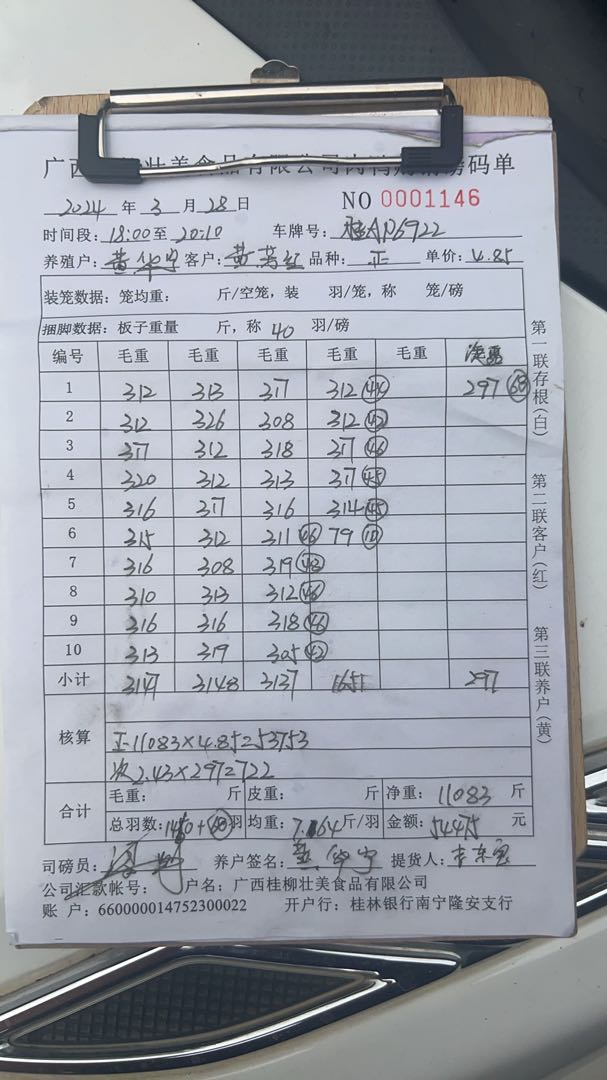 广西 壮美食品有限公司肉鸭购销磅码单
2024 年 3 月 28 日 NO 0001146
时间段: 18:00至 20:10 车牌号: 桂AP6922
养殖户: 黄华宇 客户: 黄芳红 品种: 正 单价: 4.85
装笼数据: 笼均重: 斤/空笼, 装 羽/笼, 称 笼/磅
捆脚数据: 板子重量 斤, 称 40 羽/磅
编号 毛重 毛重 毛重 毛重 毛重
1 312 313 317 312 44 297 68
2 312 326 308 312 42
3 317 312 318 317 46
4 320 312 313 317 45
5 316 317 316 314 45
6 315 312 311 46 79 10
7 316 308 319 48
8 310 313 312 46
9 316 316 318 46
10 313 319 305 42
小计 3147 3148 3137 1651 297
核算 正 11083×4.85=53753
次 2.43×297=722
合计 毛重: 斤 皮重: 斤 净重: 11083 斤
总羽数: 1450+68 羽 均重: 7.64 斤/羽 金额: 54475 元
司磅员: 养户签名: 黄华宇 提货人:
公司汇款帐号: 户名: 广西桂柳壮美食品有限公司
账 户: 660000014752300022 开户行: 桂林银行南宁隆安支行
第一联存根(白)
第二联客户(红)
第三联养户(黄)